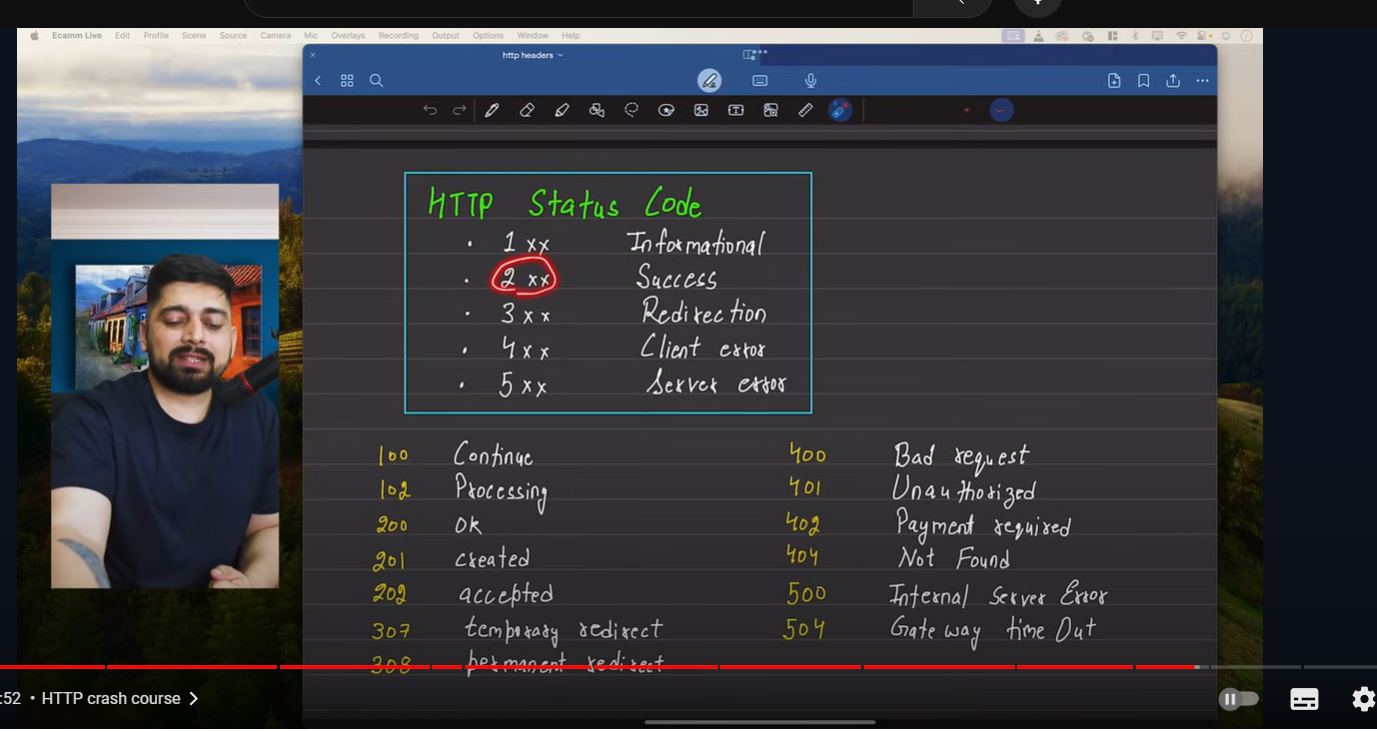 Ecamm Live Edit Profile Scene Source Camera Mic Overlays Recording Output Options Window Help
http headers
HTTP Status Code
• 1xx Informational
• 2xx Success
• 3xx Redirection
• 4xx Client error
• 5xx Server error
100 Continue
102 Processing
200 Ok
201 created
202 accepted
307 temporary redirect
308 permanent redirect
400 Bad request
401 Unauthorized
402 Payment required
404 Not Found
500 Internal Server Error
504 Gateway time Out
:52 • HTTP crash course